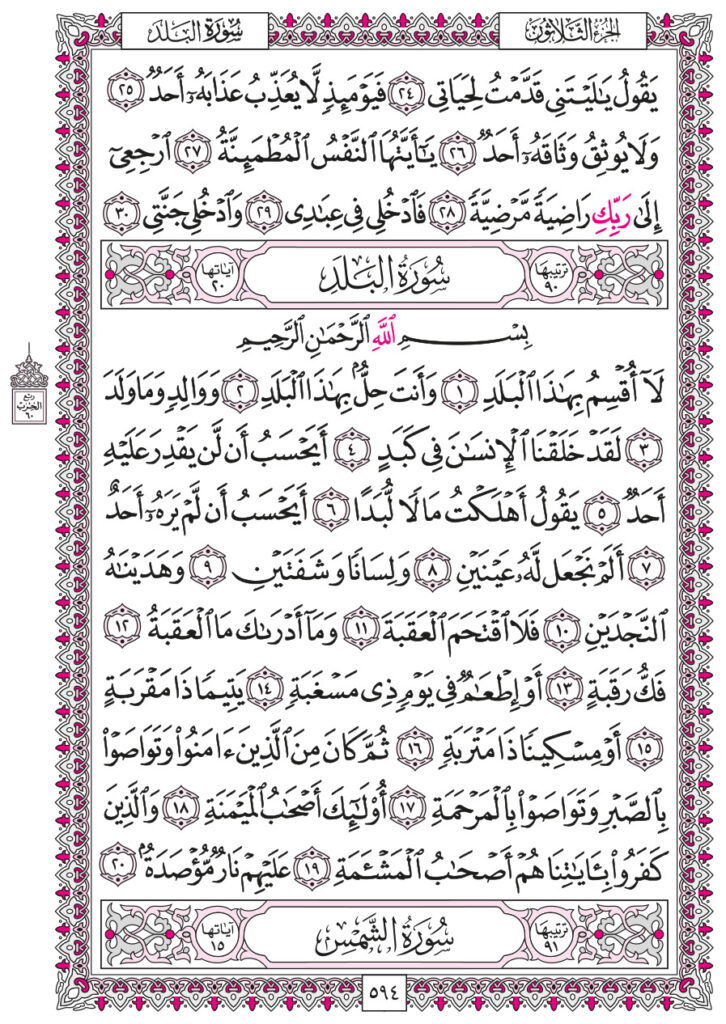 سُورَةُ البَلَدِ
الجُزْءُ الثَّلاثُونَ
يَقُولُ يَٰلَيْتَنِى قَدَّمْتُ لِحَيَاتِى ٢٤ فَيَوْمَئِذٍ لَّا يُعَذِّبُ عَذَابَهُۥٓ أَحَدٌ ٢٥
وَلَا يُوثِقُ وَثَاقَهُۥٓ أَحَدٌ ٢٦ يَٰٓأَيَّتُهَا ٱلنَّفْسُ ٱلْمُطْمَئِنَّةُ ٢٧ ٱرْجِعِىٓ
إِلَىٰ رَبِّكِ رَاضِيَةً مَّرْضِيَّةً ٢٨ فَٱدْخُلِى فِى عِبَٰدِى ٢٩ وَٱدْخُلِى جَنَّتِى ٣٠
ترتيبها ٩٠ سُورَةُ البَلَدِ آياتها ٢٠
بِسْمِ ٱللَّهِ ٱلرَّحْمَٰنِ ٱلرَّحِيمِ
لَآ أُقْسِمُ بِهَٰذَا ٱلْبَلَدِ ١ وَأَنتَ حِلٌّۢ بِهَٰذَا ٱلْبَلَدِ ٢ وَوَالِدٍ وَمَا وَلَدَ
٣ لَقَدْ خَلَقْنَا ٱلْإِنسَٰنَ فِى كَبَدٍ ٤ أَيَحْسَبُ أَن لَّن يَقْدِرَ عَلَيْهِ
أَحَدٌ ٥ يَقُولُ أَهْلَكْتُ مَالًا لُّبَدًا ٦ أَيَحْسَبُ أَن لَّمْ يَرَهُۥٓ أَحَدٌ
٧ أَلَمْ نَجْعَل لَّهُۥ عَيْنَيْنِ ٨ وَلِسَانًا وَشَفَتَيْنِ ٩ وَهَدَيْنَٰهُ
ٱلنَّجْدَيْنِ ١٠ فَلَا ٱقْتَحَمَ ٱلْعَقَبَةَ ١١ وَمَآ أَدْرَىٰكَ مَا ٱلْعَقَبَةُ ١٢
فَكُّ رَقَبَةٍ ١٣ أَوْ إِطْعَٰمٌ فِى يَوْمٍ ذِى مَسْغَبَةٍ ١٤ يَتِيمًا ذَا مَقْرَبَةٍ
١٥ أَوْ مِسْكِينًا ذَا مَتْرَبَةٍ ١٦ ثُمَّ كَانَ مِنَ ٱلَّذِينَ ءَامَنُوا۟ وَتَوَاصَوْا۟
بِٱلصَّبْرِ وَتَوَاصَوْا۟ بِٱلْمَرْحَمَةِ ١٧ أُو۟لَٰٓئِكَ أَصْحَٰبُ ٱلْمَيْمَنَةِ ١٨ وَٱلَّذِينَ
كَفَرُوا۟ بِـَٔايَٰتِنَا هُمْ أَصْحَٰبُ ٱلْمَشْـَٔمَةِ ١٩ عَلَيْهِمْ نَارٌ مُّؤْصَدَةٌۢ ٢٠
ترتيبها ٩١ سُورَةُ الشَّمْسِ آياتها ١٥
٥٩٤
ربع
الحزب
٦٠